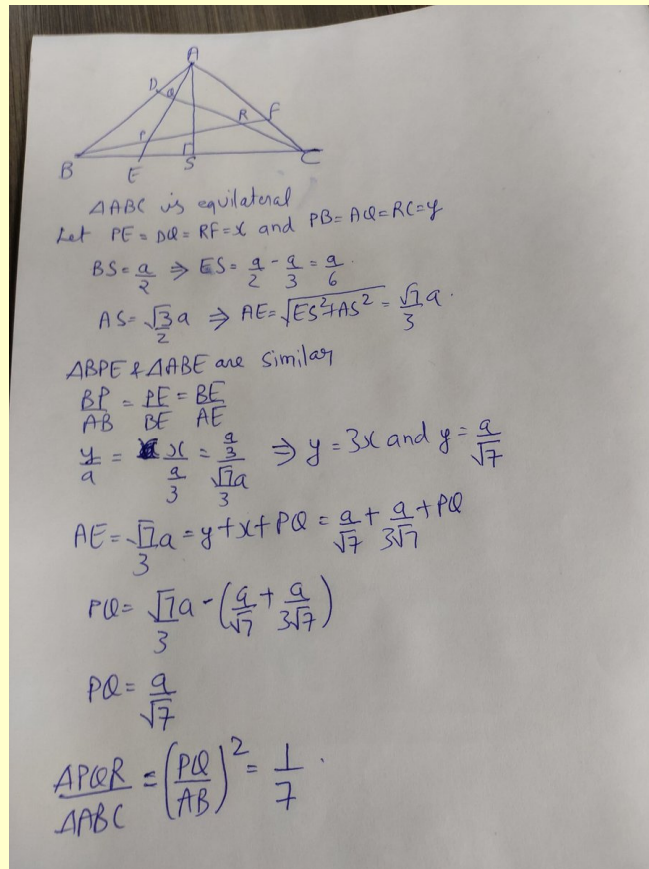 A
D
Q
F
R
P
B
E
S
C
ΔABC is equilateral
Let PE = DQ = RF = x and PB = AQ = RC = y
BS = a/2 ⇒ ES = a/2 - a/3 = a/6.
AS = √3/2 a ⇒ AE = √(ES²+AS²) = √7/3 a.
ΔBPE & ΔABE are similar
BP/AB = PE/BE = BE/AE
y/a = x/(a/3) = (a/3)/(√7a/3) ⇒ y = 3x and y = a/√7
AE = √7a/3 = y+x+PQ = a/√7 + a/3√7 + PQ
PQ = √7a/3 - (a/√7 + a/3√7)
PQ = a/√7
ΔPQR/ΔABC = (PQ/AB)² = 1/7.